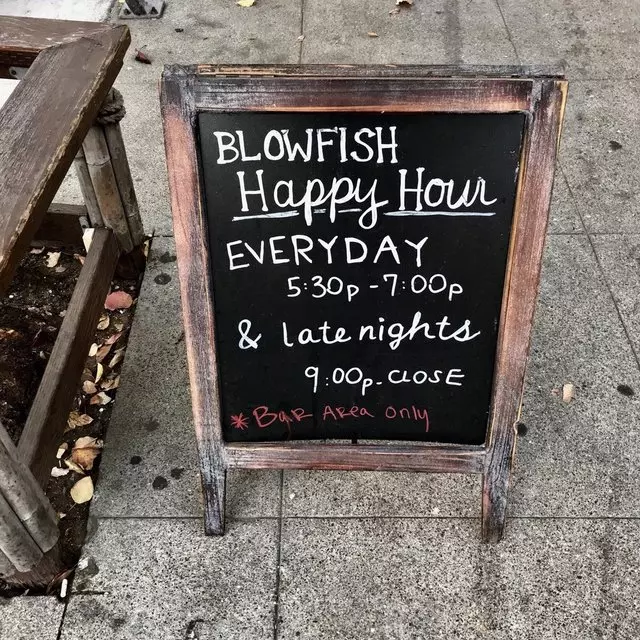 BLOWFISH
Happy Hour
EVERYDAY
5:30p - 7:00p
& late nights
9:00p - CLOSE
* Bar Area Only